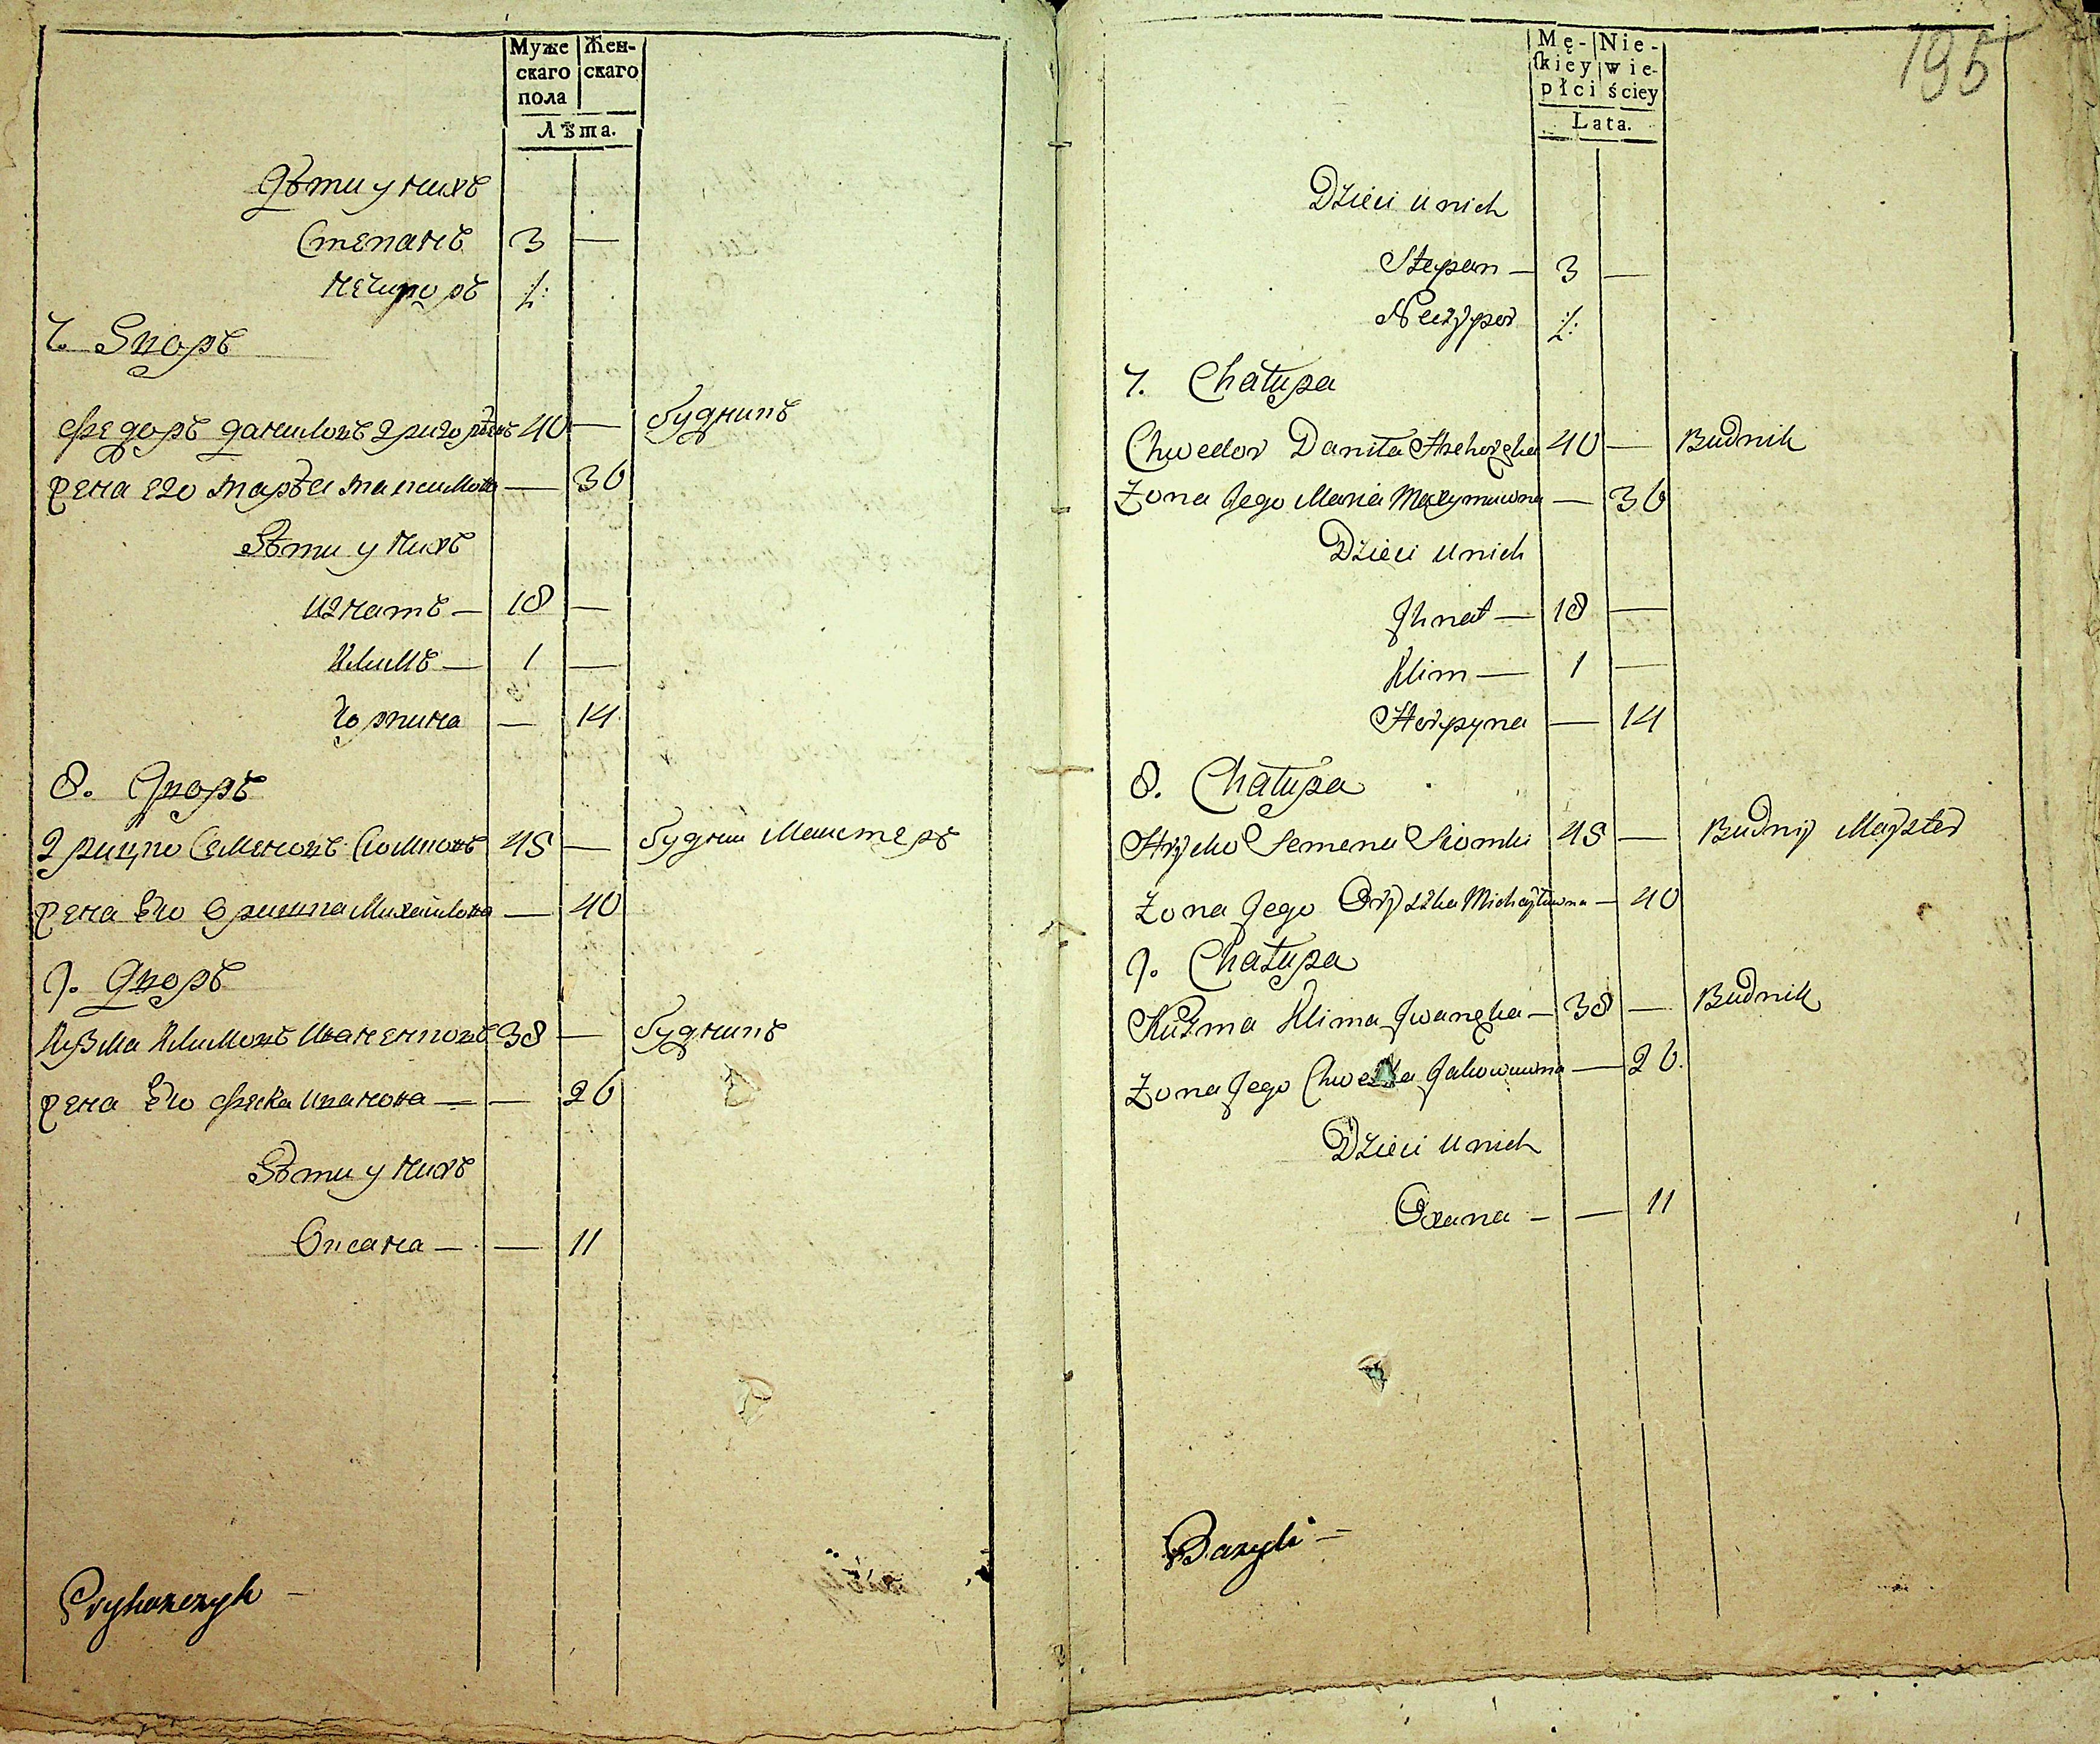 Муже Жен-
скаго скаго
пола
Лѣта.
Дѣти у нихъ
Степанъ 3 —
Нечипоръ ½
7. Дворъ
Федоръ Даниловъ 40 — будникъ
жена его Марья Максимова — 36
Дѣти у нихъ
Игнатъ — 18 —
Климъ — 1 —
Горпина — 14
8. Дворъ
Грицко Семеновъ Сіомковъ 45 — будни Маистеръ
жена Его Оришка Михайлова — 40
9. Дворъ
Кузма Климовъ Иваненковъ 38 — будникъ
жена Его Феска Иванова — — 26
Дѣти у нихъ
Оксана — — 11
Pryhonczyk —
195
Mę- Nie-
skiey wie-
płci ściey
Lata.
Dzieci u nich
Stepan — 3 —
Neczypor ½
7. Chałupa
Chwedor Daniła 40 — Budnik
Żona Jego Maria Maxymuwna — 36
Dzieci u nich
Jhnat — 18 —
Klim — 1 —
Horpyna — 14
8. Chałupa
Hrycko Semena Siomki 45 — Budny Mayster
Żona Jego Oryszka Michayłuwna — 40
9. Chałupa
Kuźma Klima Jwanęka — 38 — Budnik
Żona Jego Chweska Jakowuwna — 26.
Dzieci u nich
Oxana — — 11
Bazyli —